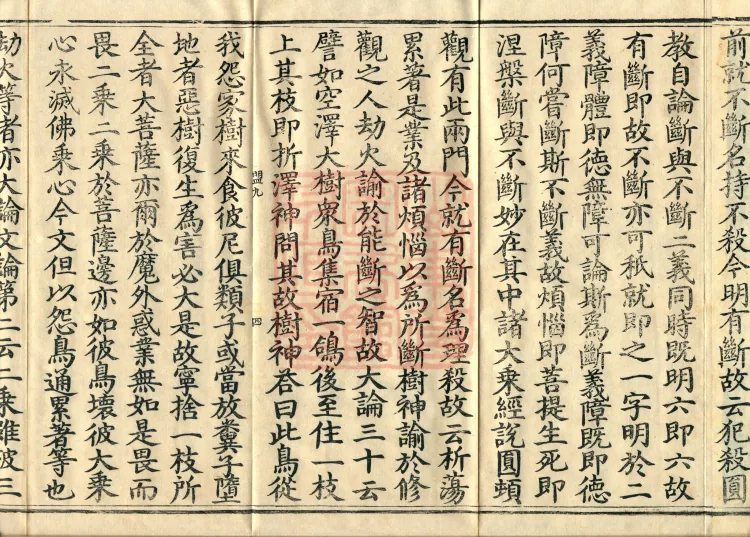 前就不斷名持不殺今明有斷故云犯殺圓
教自論斷與不斷二義同時既明六即六故
有斷即故不斷亦可秖就即之一字明於二
義障體即德無障可論斯為斷義障既即德
障何嘗斷斯不斷義故煩惱即菩提生死即
涅槃斷與不斷妙在其中諸大乘經說圓頓
觀有此兩門今就有斷名為理殺故云析蕩
累著是業及諸煩惱以為所斷樹神諭於修
觀之人劫火諭於能斷之智故大論三十云
譬如空澤大樹眾鳥集宿一鴿後至住一枝
上其枝即折澤神問其故樹神荅曰此鳥從
盟九
四
我怨家樹來食彼尼俱類子或當放糞子墮
地者惡樹復生為害必大是故寧捨一枝所
全者大菩薩亦爾於魔外惑業無如是畏而
畏二乘二乘於菩薩邊亦如彼鳥壞彼大乘
心永滅佛乘心今文但以怨鳥通累著等也
劫火等者亦大論文論第二云二乘雖破三